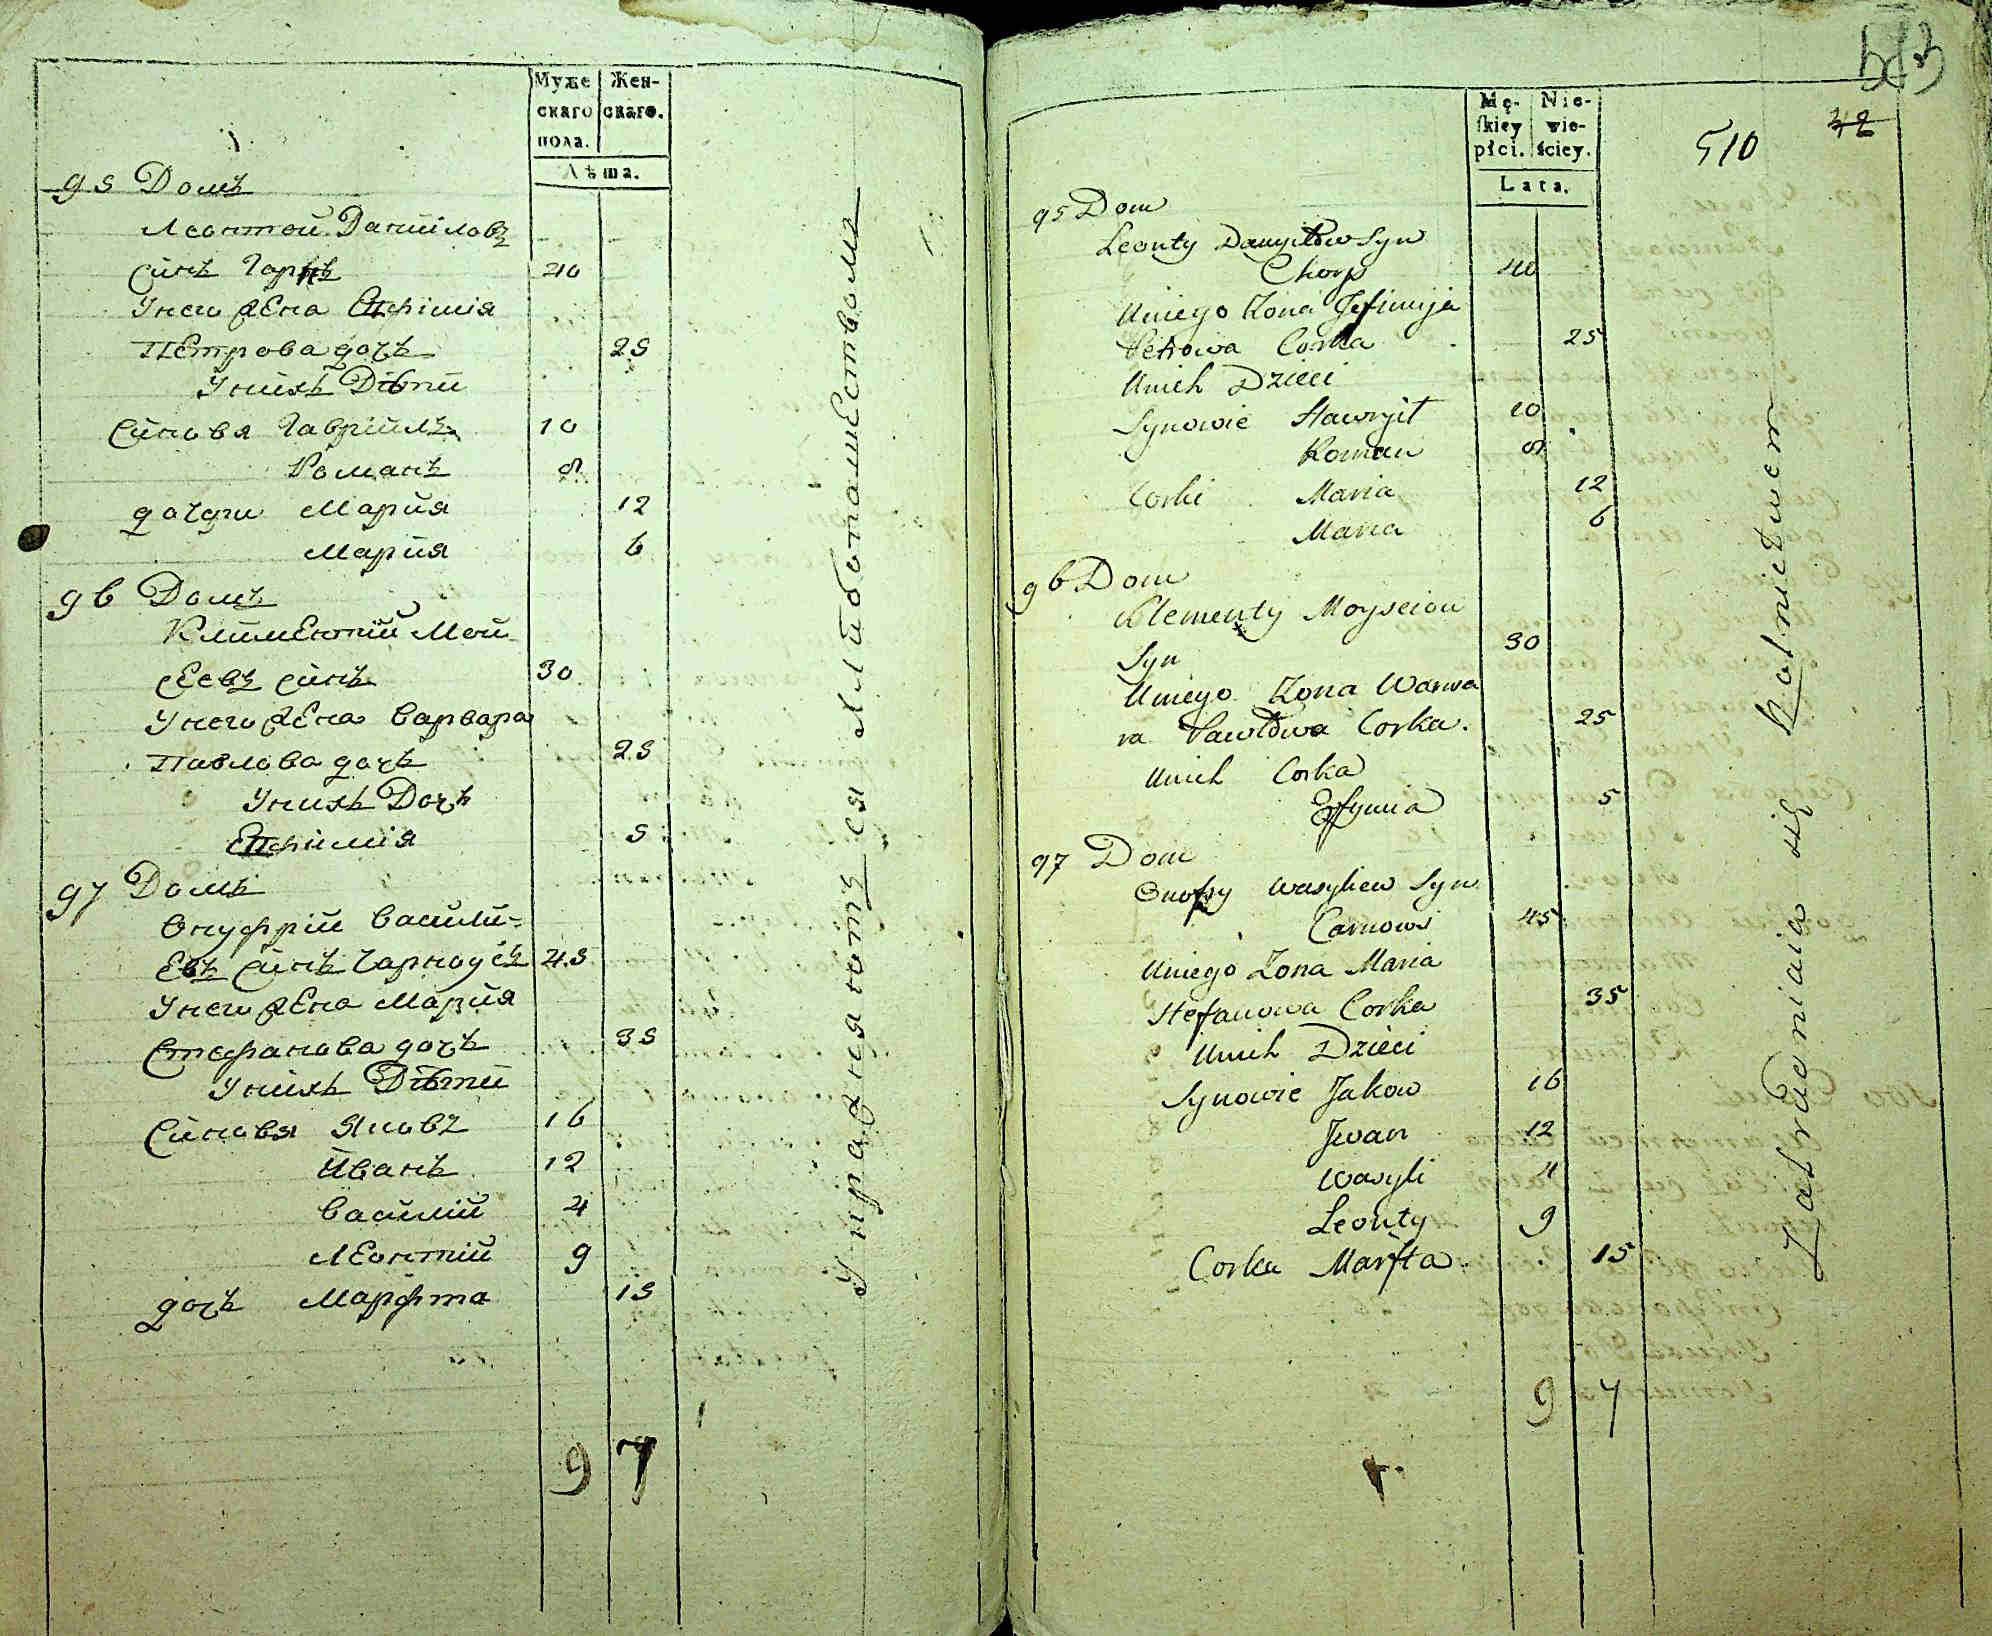 Муже
скаго
пола.
Жен-
скаго.
Лѣта.
95 Домъ
Леонтей Данйловъ
Сйнъ 40
Унего жена Епфімія
Петрова дочъ 25
Унйхъ Дѣтй
Сйновя Гаврійлъ 10
Романъ 8
дочери Марйя 12
Марйя 6
96 Домъ
Клйментій Мой-
сеевъ сйнъ 30
Унего жена Варвара
Павлова дочъ 25
Унихъ Дочъ
Епфімія 5
97 Домъ
Онуфрій Васйлй-
евъ Сйнъ Чарноусъ 45
Унего жена Марйя
Стефанова дочъ 35
Унйхъ Дѣтй
Сйновя Яковъ 16
Иванъ 12
Васйлій 4
Леонтій 9
дочъ Марфта 15
9 7
Упражняютъ ся хлйбопашествомъ
573
48
510
Mę-
skiey
płci.
Nie-
wie-
ściey.
Lata.
95 Dom
Leonty Danyiłow Syn
40
Uniego Zona Jefimija
Petrowa Corka 25
Unich Dzieci
Synowie Hawryił 10
Roman 8
Corki Maria 12
Maria 6
96 Dom
Klementy Moyseiow
Syn 30
Uniego Zona Warwa
ra Pawłowa Corka. 25
Unich Corka
Effymia 5
97 Dom
Onofry Wasyliew Syn
Carnows 45
Uniego Zona Maria
Stefanowa Corka 35
Unich Dzieci
Synowie Jakow 16
Jwan 12
Wasyli 4
Leonty 9
Corka Marfta 15
9 7
Zatrudniaia się Rolnictwem